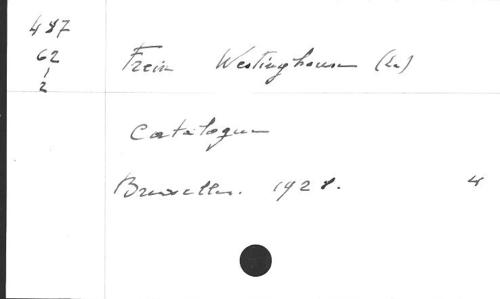 487
62
1
2
Frein Westinghouse (Le)
Catalogue
Bruxelles. 1928.